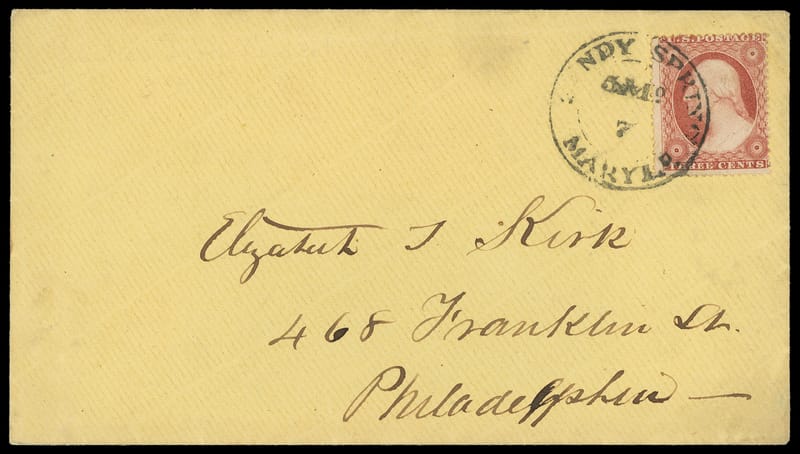 U.S. POSTAGE
NDY SPRING
5 Mo
7
MARYLD.
REE CENTS
Elizabeth T Kirk
468 Franklin St.
Philadelphia